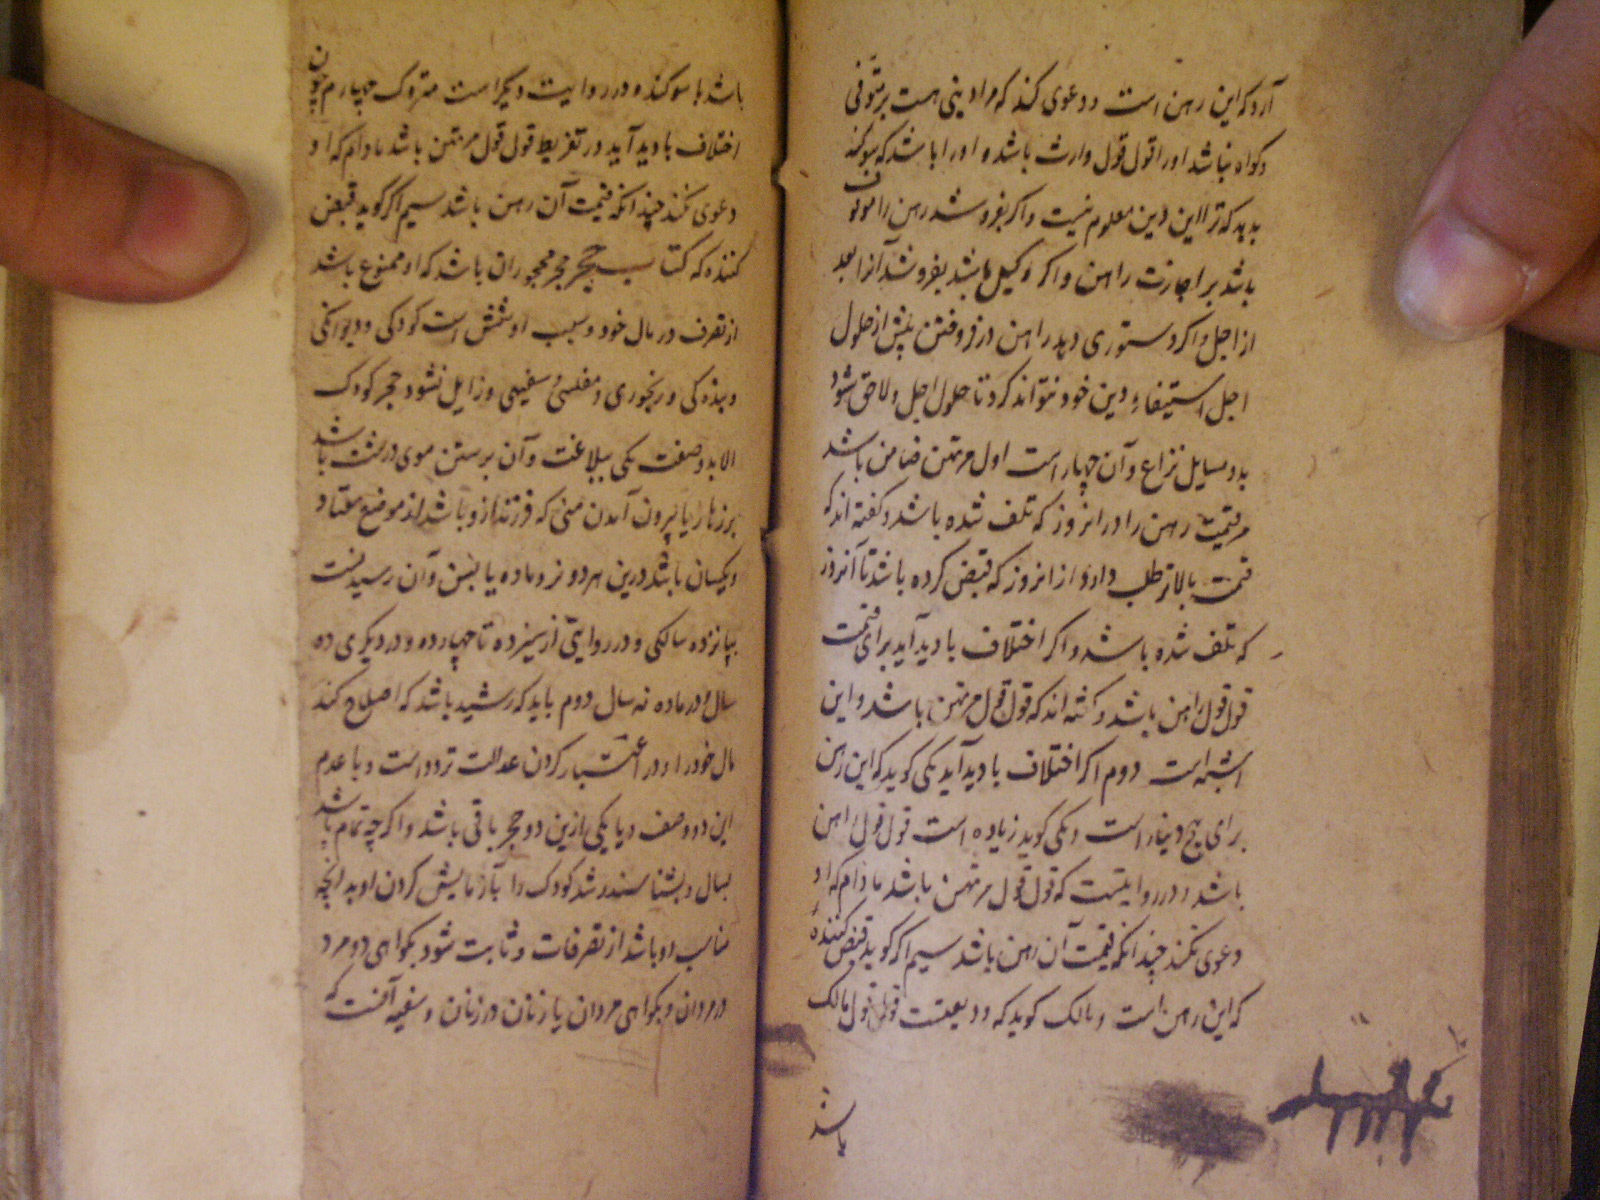 آرد که این رهن است و دعوی کند که مرا دینی هست بر متوفی
و کواه نباشد او را قول قول وارث باشد و او را باشد که سوکند
بدهد که ترا این دین معلوم نیست و اکر بفروشد رهن را موقوف
باشد بر اجازت راهن و اکر وکیل باشد بفروشد آنرا بعد
از اجل و اکر دستوری دهد راهن در فروختن پیش از حلول
اجل استیفاء دین خود نتواند کرد تا حلول اجل و لاحق شود
بدو مسایل نزاع و آن چهار است اول مرتهن ضامن باشد
مر قیمت رهن را در انروز که تلف شده باشد و کفته اند که
قیمت بالاتر طلب دارد از انروز که قبض کرده باشد تا آنروز
که تلف شده باشد و اکر اختلاف بادید آید برای قیمت
قول قول راهن باشد و کفته اند که قول قول مرتهن باشد و این
اشبه است دوم اکر اختلاف بادید آید یکی کوید که این رهن
برای پنج دینار است و یکی کوید زیاده است قول قول راهن
باشد و در روایتیست که قول قول مرتهن باشد مادام که او
دعوی نکند چندانکه قیمت آن رهن باشد سیم اکر کوید قبض کننده
که این رهن است و مالک کوید که ودیعتست قول قول مالک
باشد
باشد با سوکند و در روایت دیکر است متروک چهارم چون
اختلاف بادید آید در تفریط قول قول مرتهن باشد مادام که او
دعوی نکند چندانکه قیمت آن رهن باشد سیم اکر کوید قبض
کننده که کتاب حجر مجر محجوران باشد که او ممنوع باشد
از تصرف در مال خود و سبب او شش است کودکی و دیوانکی
و بنده کی و رنجوری و مفلسی و سفیهی و زایل نشود حجر کودک
الا بدو صفت یکی ببلاغت و آن برستن موی درشت باشد
بر زهار یا بیرون آمدن منی که فرزند ازو باشد از موضع معتاد
و یکسان باشد درین هر دو نر و ماده یا بسن و آن رسیدنست
بپانزده سالکی و در روایتی از سیزده تا چهارده و در دیکری ده
سال و در ماده نه سال دوم باید که رشید باشد که اصلاح کند
مال خود را و در اعتبار کردن عدالت تردد است و با عدم
این دو وصف و یا یکی ازین دو حجر باقی باشد و اکر چه تمام باشد
بسال و بشناسند رشد کودک را بآزمایش کردن او بدانچه
مناسب او باشد از تصرفات و ثابت شود بکواهی دو مرد
در مردان و بکواهی مردان یا زنان در زنان و سفیه آنست که